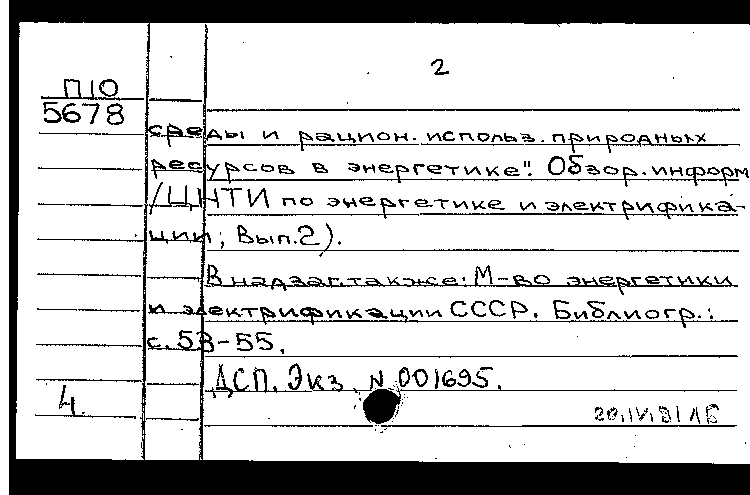 2
П10
5678
среды и рацион. использ. природных
ресурсов в энергетике". Обзор. информ
/ЦНТИ по энергетике и электрифика-
ции; Вып.2).
В надзаг. также: М-во энергетики
и электрификации СССР. Библиогр.:
с. 53-55.
ДСП. Экз. N 001695.
4.
20.IV.81